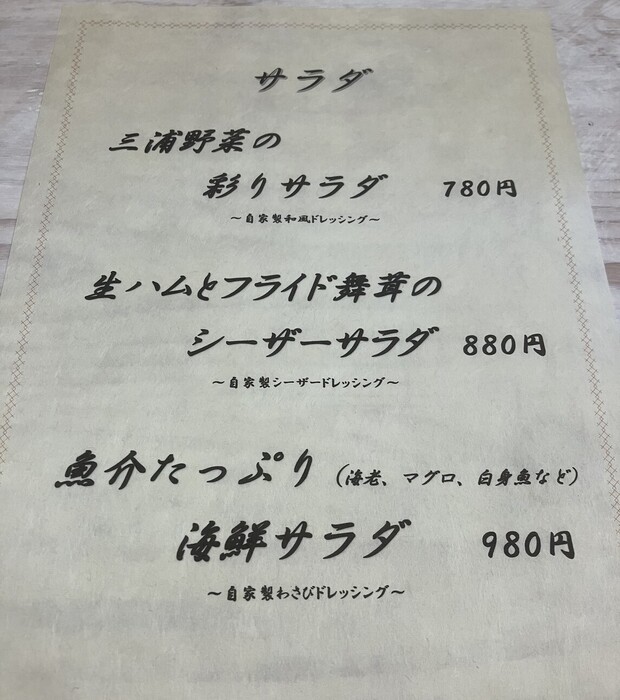 サラダ
三浦野菜の
彩りサラダ 780円
～自家製和風ドレッシング～
生ハムとフライド舞茸の
シーザーサラダ 880円
～自家製シーザードレッシング～
魚介たっぷり（海老、マグロ、白身魚など）
海鮮サラダ 980円
～自家製わさびドレッシング～